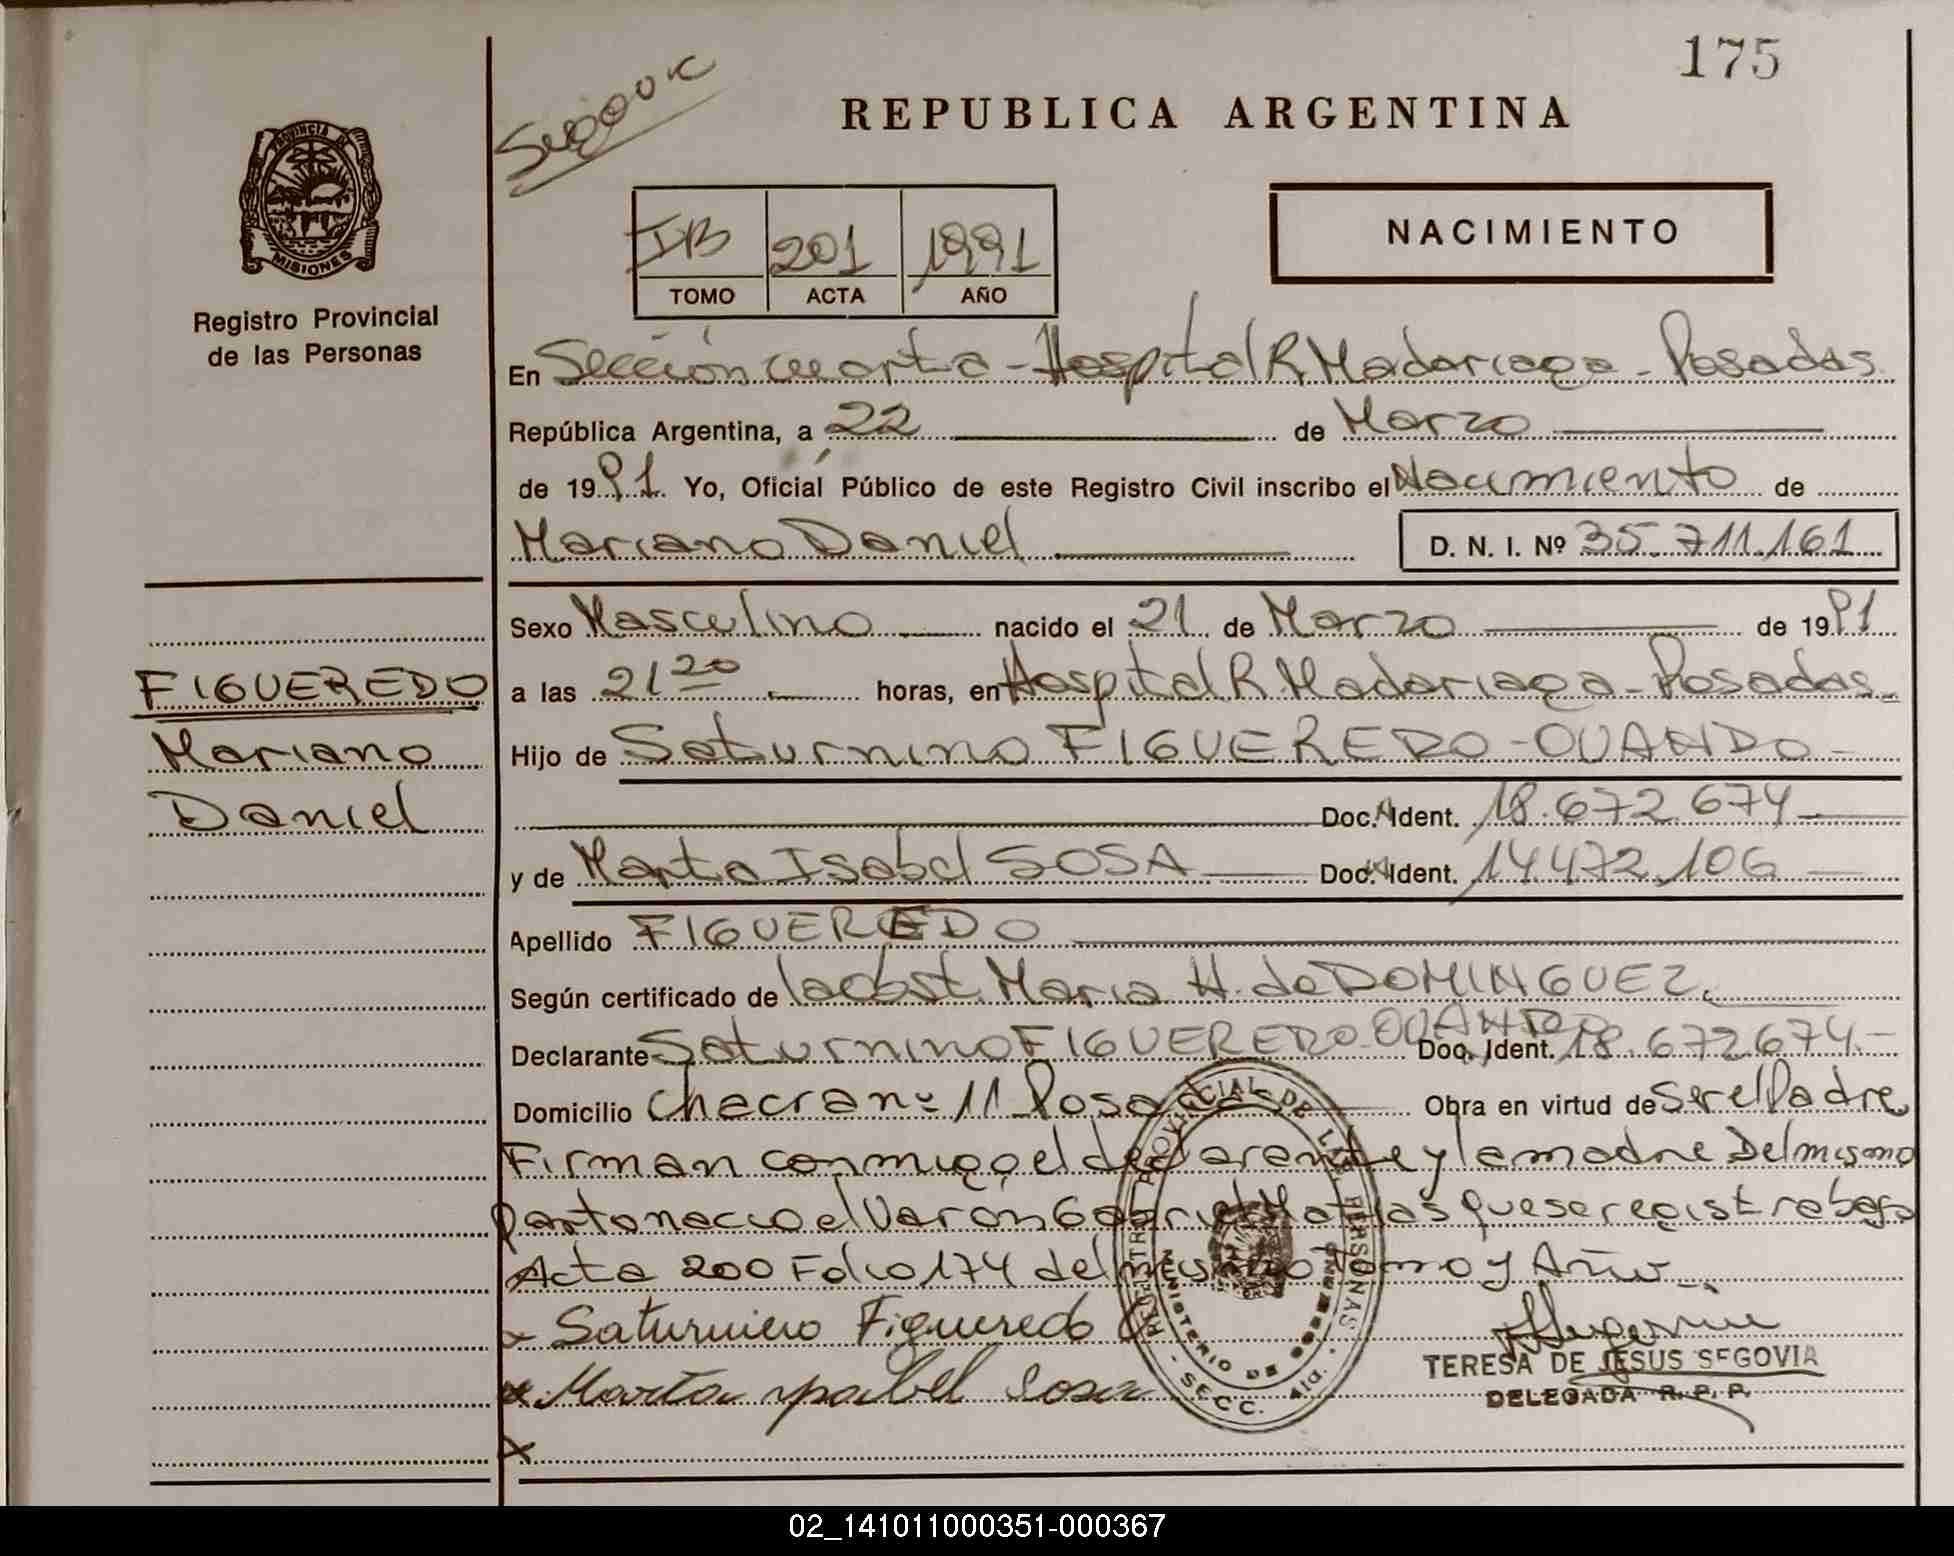 175
REPUBLICA ARGENTINA
NACIMIENTO
PROVINCIA DE
MISIONES
Registro Provincial
de las Personas
IB 201 1991
TOMO ACTA AÑO
En Sección cuarta - Hospital R. Madariaga - Posadas
República Argentina, a 22 de Marzo
de 1991. Yo, Oficial Público de este Registro Civil inscribo el Nacimiento de
Mariano Daniel D. N. I. Nº 35.711.161
Sexo Masculino nacido el 21 de Marzo de 1991
FIGUEREDO
Mariano
Daniel
a las 21 20 horas, en Hospital R. Madariaga - Posadas -
Hijo de Saturnino FIGUEREDO - OVANDO -
Doc. Ident. 18.672.674
y de Marta Isabel SOSA Doc. Ident. 14.472.106
Apellido FIGUEREDO
Según certificado de la obst. Maria H. de DOMINGUEZ.
Declarante Saturnino FIGUEREDO - OVANDO Doc. Ident. 18.672.674.-
Domicilio Chacra nº 11 Posadas Obra en virtud de Ser el Padre
Firman conmigo el declarante y la madre Del mismo
parto nacio el Varón Gabriel Matias que se registra bajo
Acta 200 Folio 174 del mismo Tomo y Año.-
x Saturnino Figueredo O
x Marta ysabel Sosa
x
TERESA DE JESUS SEGOVIA
DELEGADA R. P. P.
REGISTRO PROVINCIAL DE LAS PERSONAS
MINISTERIO DE GOBIERNO
SECC. 4ta.
02_141011000351-000367